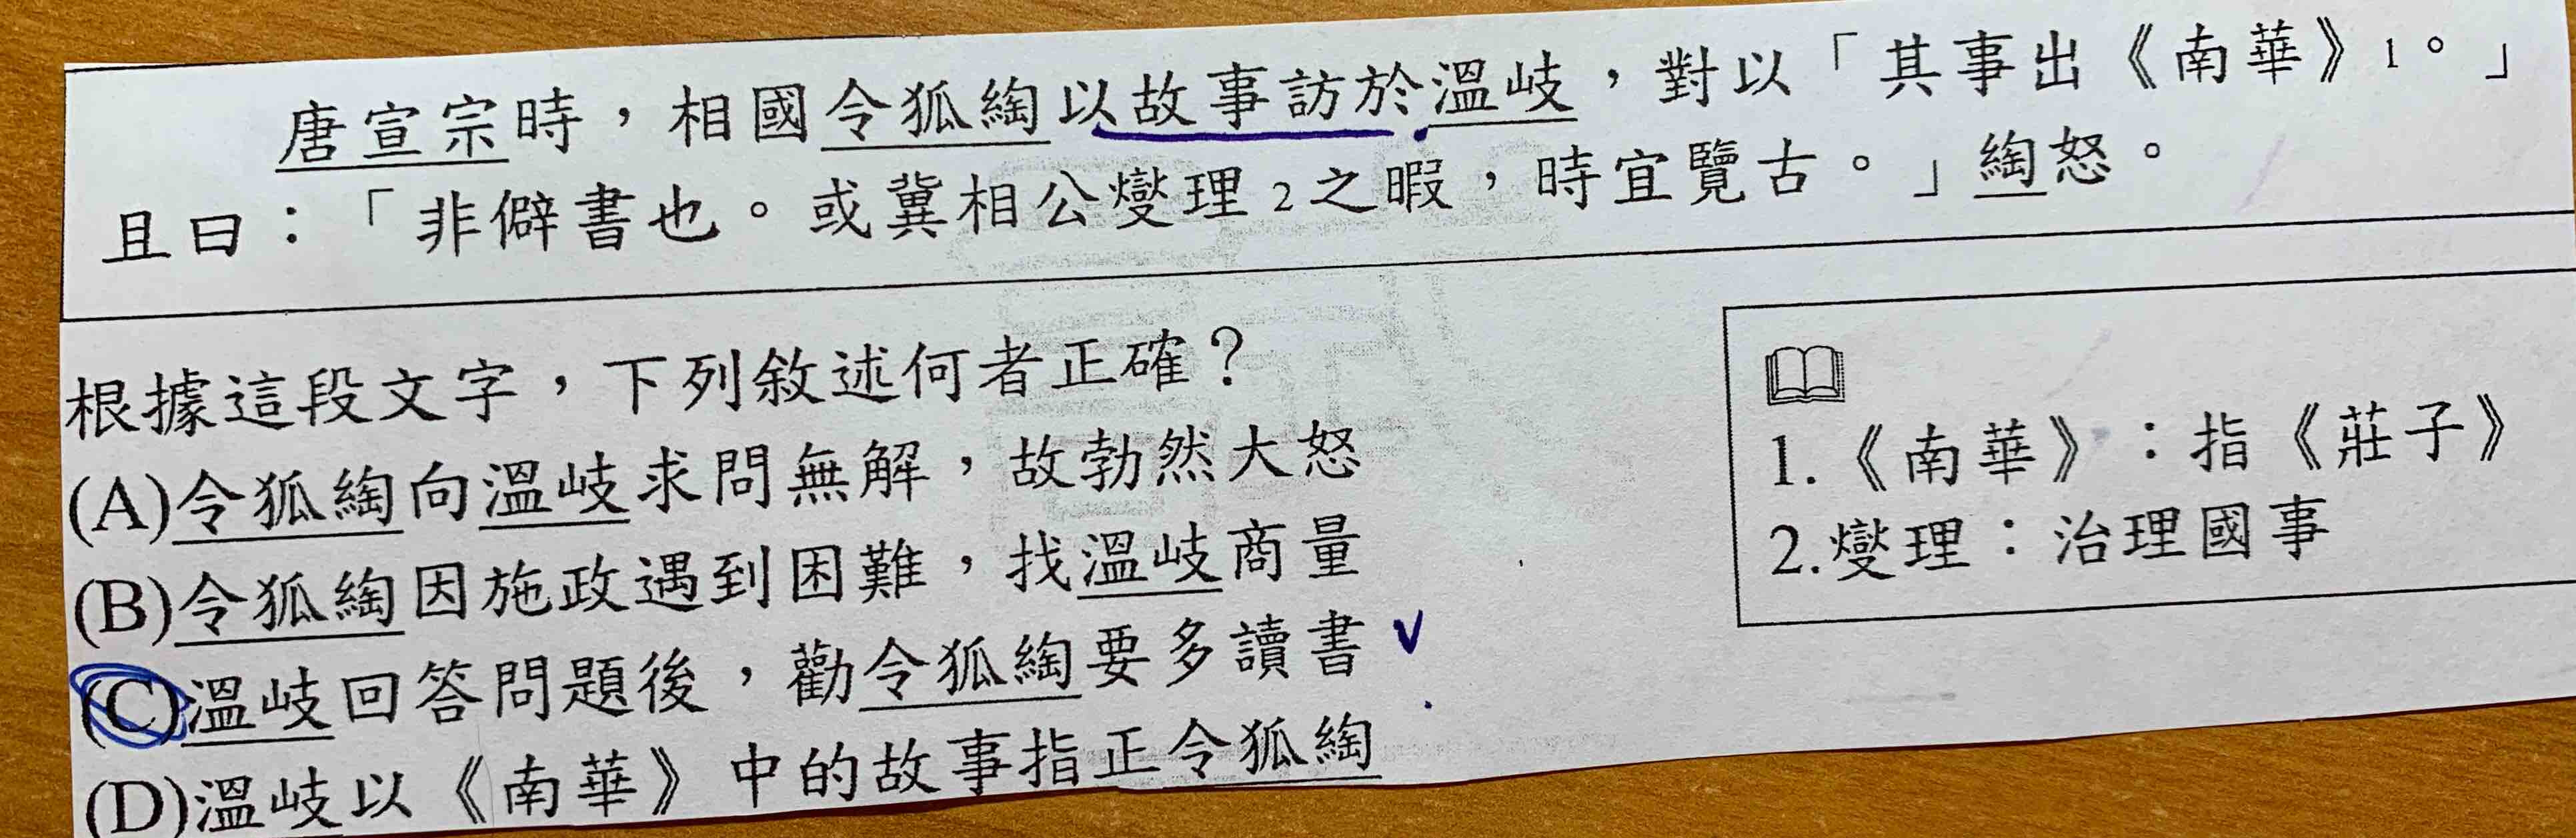 唐宣宗時，相國令狐綯以故事訪於溫岐，對以「其事出《南華》1。」
且曰：「非僻書也。或冀相公燮理2之暇，時宜覽古。」綯怒。
根據這段文字，下列敘述何者正確？
(A)令狐綯向溫岐求問無解，故勃然大怒
(B)令狐綯因施政遇到困難，找溫岐商量
(C)溫岐回答問題後，勸令狐綯要多讀書
(D)溫岐以《南華》中的故事指正令狐綯
1.《南華》：指《莊子》
2.燮理：治理國事